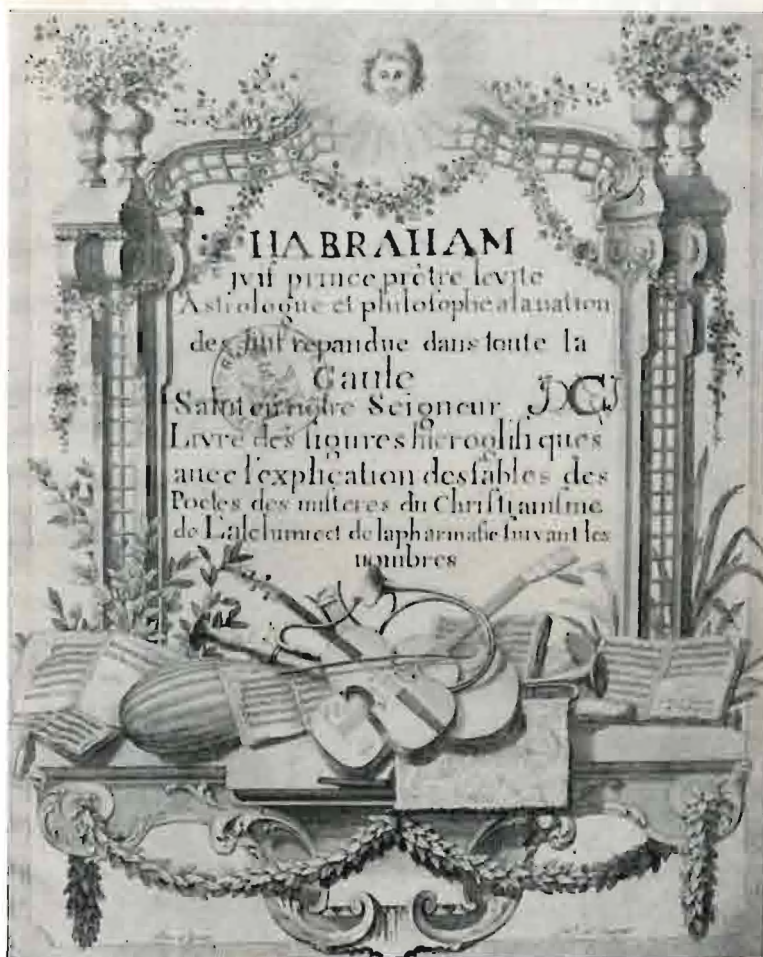 HABRAHAM
juif prince prètre levite
Astrologue et philosophe a la nation
des juif repandue dans toute la
Gaule
Salut en notre Seigneur
Livre des figures hieroglifiques
avec l'explication des fables des
Poetes des misteres du Christianisme
de Lalchimie et de la pharmasie suivant les
nombres